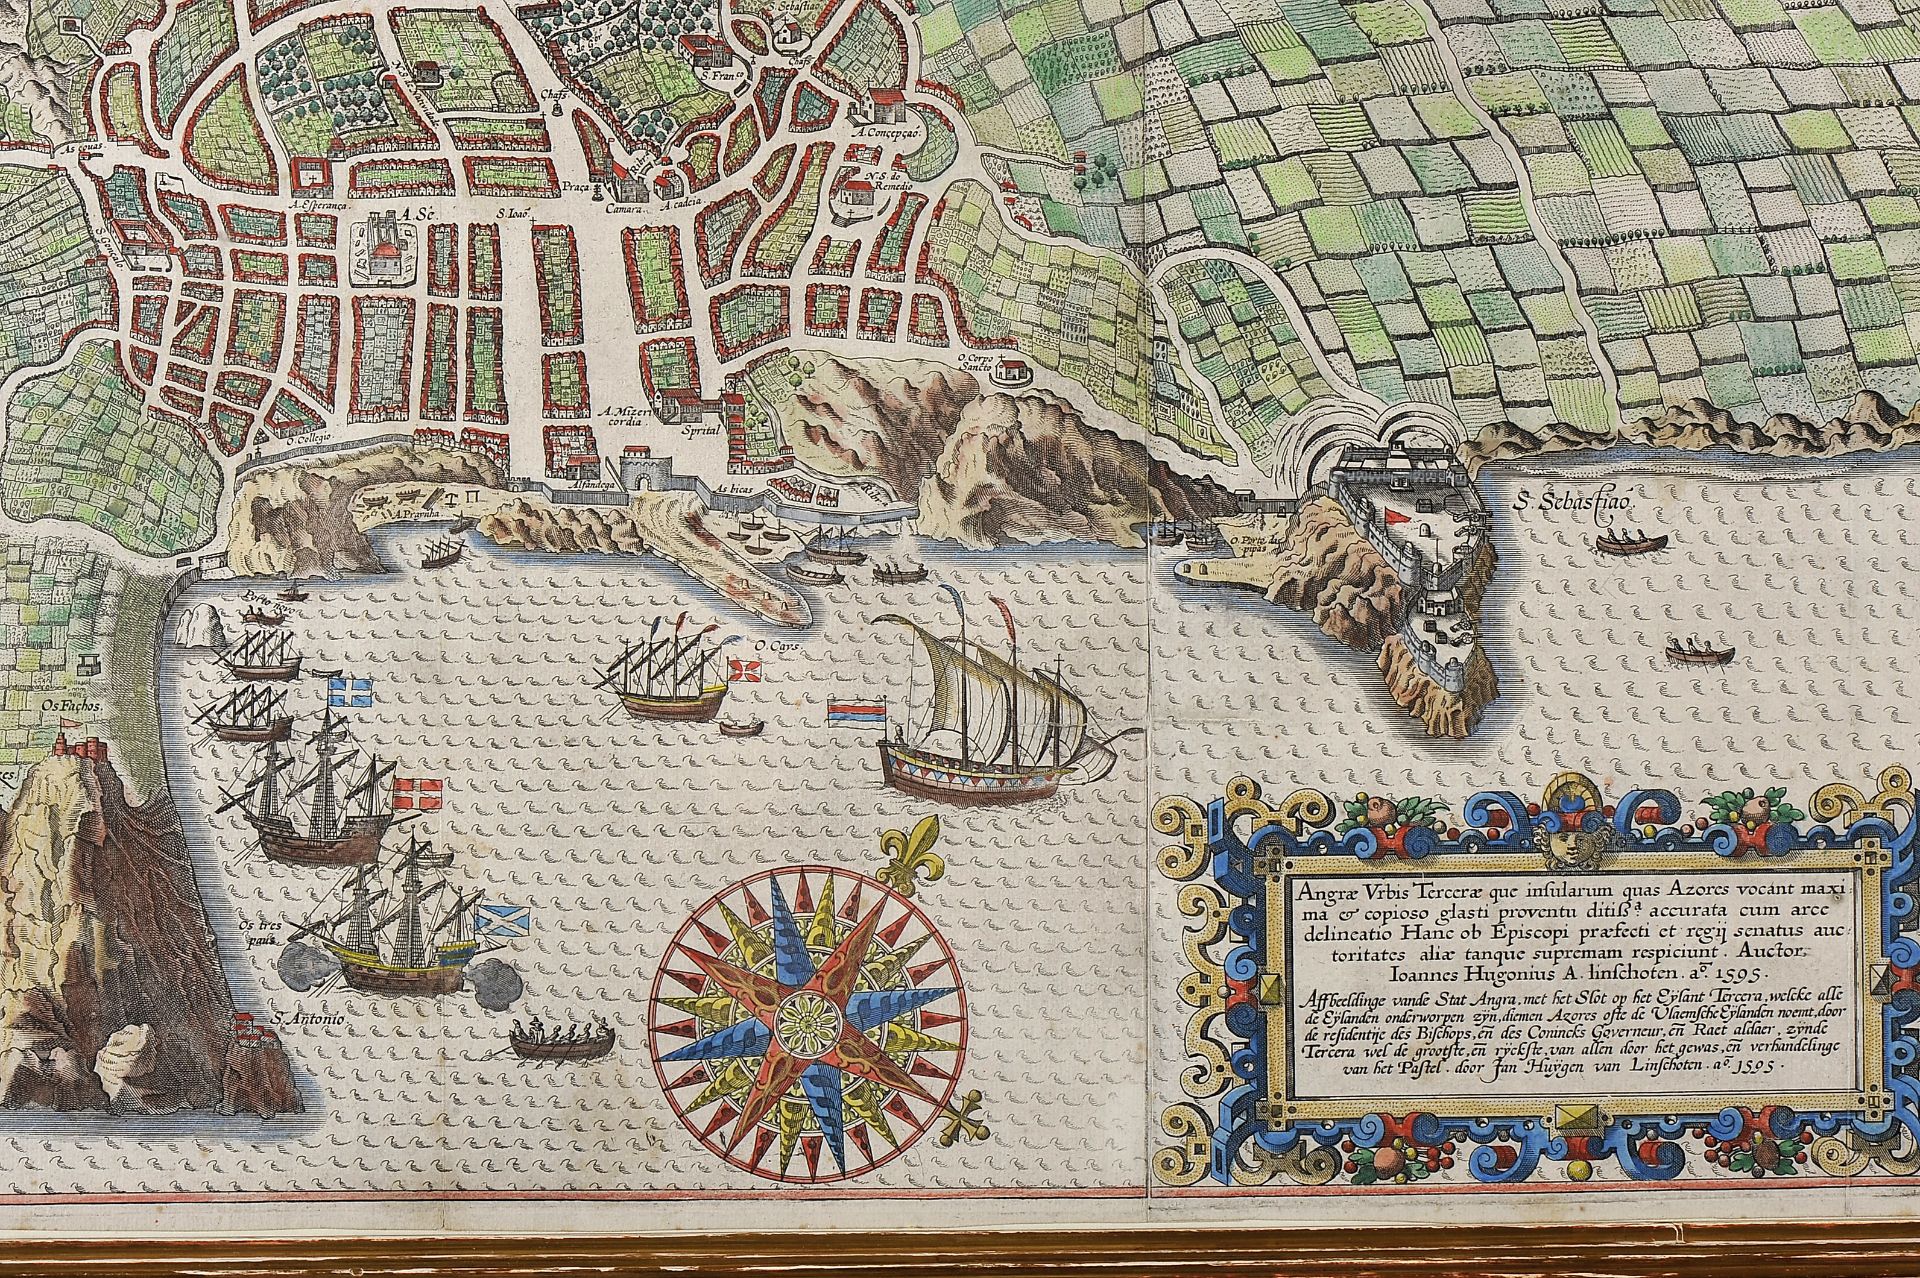 S. Sebastiaõ
Chafs
S. Franco
Chafs
A. Concepçaõ
As couas
N. S. do
Remedio
Praça
Camara
A. cadeia
A. Esperança
A. Sé.
S. Ioaõ
S. Goncalo
O. Corpo
Sancto
A. Mizeri
cordia
Sprital
O. Collegio
Alfandega
As bicas
A. Praynha
S. Sebastiaõ
O. Porto das
pipas
Porto novo
O. Cays.
Os Fachos.
Os tres
paus
S. Antonio
Angræ Vrbis Terceræ que insularum quas Azores vocant maxi:
ma & copioso glasti proventu ditissa accurata cum arce
delineatio Hanc ob Episcopi præfecti et regij senatus auc:
toritates aliæ tanque supremam respiciunt. Auctor.
Ioannes Hugonius A. linschoten. ao. 1595.
Affbeeldinge vande Stat Angra, met het Slot op het Eÿlant Tercera, welcke alle
de Eÿlanden onderworpen zÿn, diemen Azores ofte de Vlaemsche Eÿlanden noemt, door
de residentije des Bisschops, eñ des Conincks Governeur, eñ Raet aldaer, zÿnde
Tercera wel de grootste, eñ rÿckste, van allen door het gewas, eñ verhandelinge
van het Pastel. door Jan Huÿgen van Linschoten. ao. 1595.